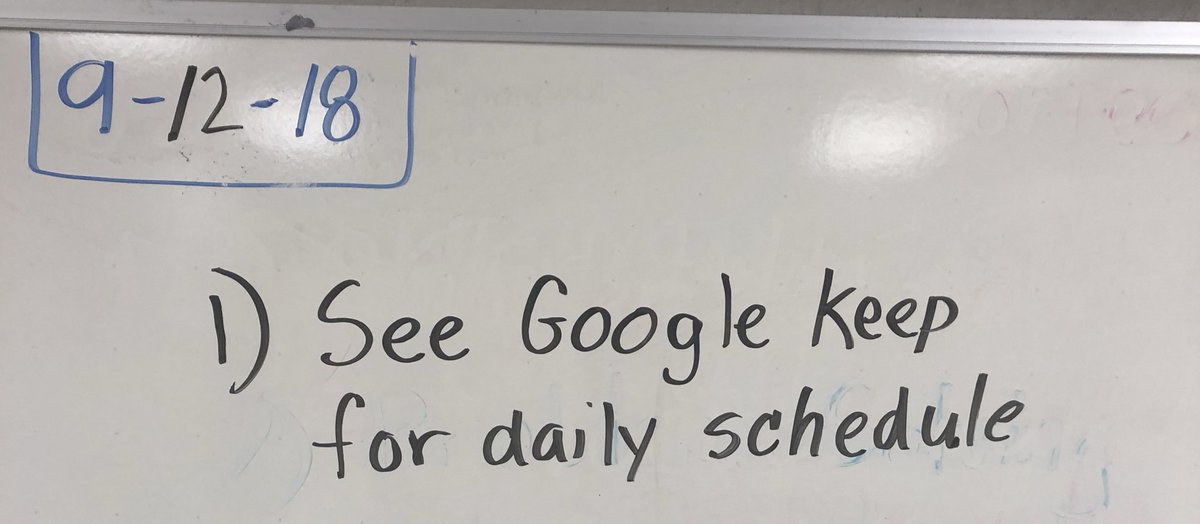 9-12-18
1) See Google Keep
for daily schedule